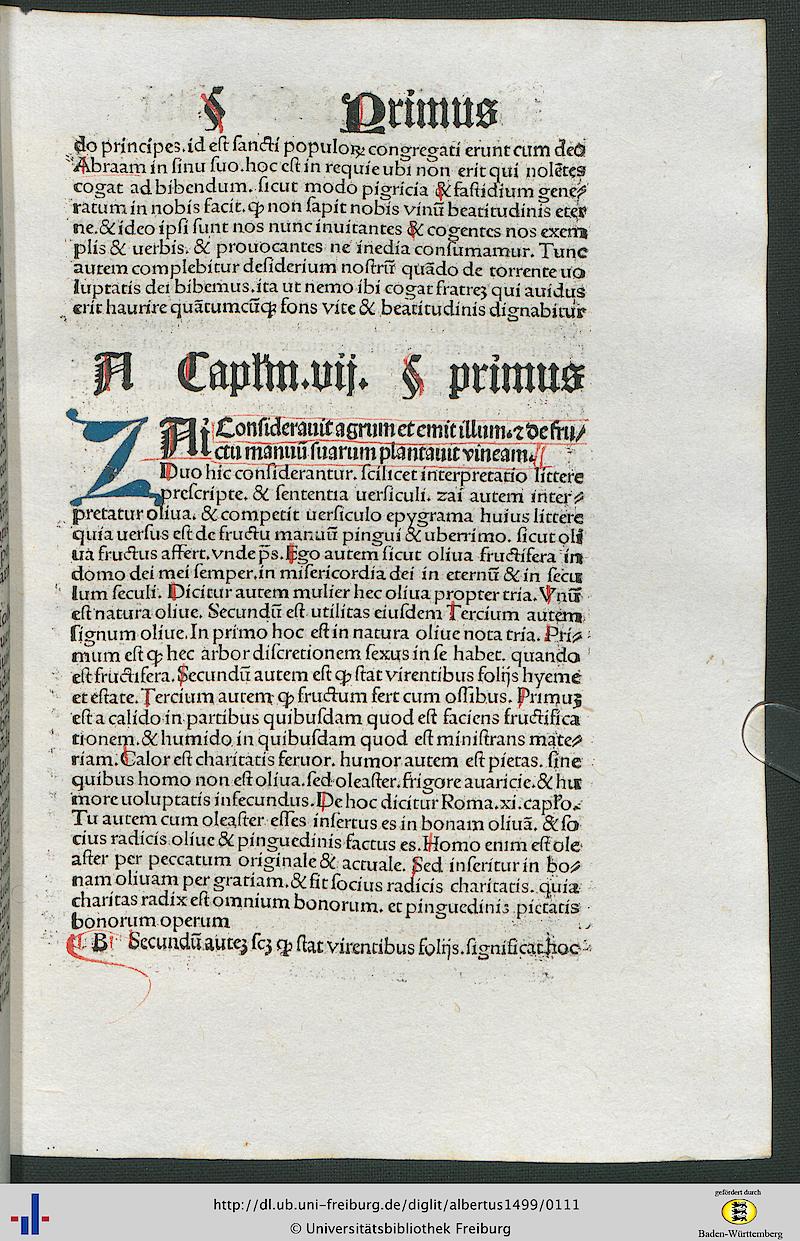 § Primus
do principes.id est sancti populoꝝ congregati erunt cum deo
Abraam in sinu suo.hoc est in requie ubi non erit qui nolētes
cogat ad bibendum. sicut modo pigricia & fastidium gene⸗
ratum in nobis facit.ꝙ non sapit nobis vinū beatitudinis eter
ne.& ideo ipsi sunt nos nunc inuitantes & cogentes nos exem
plis & uerbis. & prouocantes ne inedia consumamur. Tunc
autem complebitur desiderium nostrū quādo de torrente uo
luptatis dei bibemus.ita ut nemo ibi cogat fratreȝ qui auidus
erit haurire quātumcūqꝫ fons vite & beatitudinis dignabitur
A Capl̄m.vij. § primus
ZAi Considerauit agrum et emit illum.⁊ de fru/
ctu manuū suarum plantauit vineam.
Duo hic considerantur. scilicet interpretatio littere
prescripte. & sententia uersiculi. zai autem inter⸗
pretatur oliua. & competit uersiculo epygrama huius littere
quia uersus est de fructu manuū pingui & uberrimo. sicut oli
ua fructus affert. vnde p̄s. Ego autem sicut oliua fructifera in
domo dei mei semper.in misericordia dei in eternū & in secu
lum seculi. Dicitur autem mulier hec oliua propter tria. Vnū
est natura oliue. Secundū est utilitas eiusdem Tercium autem
signum oliue.In primo hoc est in natura oliue nota tria. Pri⸗
mum est ꝙ hec arbor discretionem sexus in se habet. quando
est fructifera. Secundū autem est ꝙ stat virentibus folijs hyeme
et estate. Tercium autem ꝙ fructum fert cum ossibus. Primuȝ
est a calido in partibus quibusdam quod est faciens fructifica
tionem.& humido in quibusdam quod est ministrans mate⸗
riam. Calor est charitatis feruor. humor autem est pietas. sine
quibus homo non est oliua.sed oleaster.frigore auaricie.& hu
more uoluptatis infecundus. De hoc dicitur Roma.xi.cap̄lo.
Tu autem cum oleaster esses insertus es in bonam oliuā. & so
cius radicis oliue & pinguedinis factus es. Homo enim est ole
aster per peccatum originale & actuale. Sed inseritur in bo⸗
nam oliuam per gratiam.& fit socius radicis charitatis. quia
charitas radix est omnium bonorum. et pinguedinis pietatis
bonorum operum
B Secundū auteȝ scȝ ꝙ stat virentibus folijs.significat hoc
http://dl.ub.uni-freiburg.de/diglit/albertus1499/0111
© Universitätsbibliothek Freiburg
gefördert durch
Baden-Württemberg